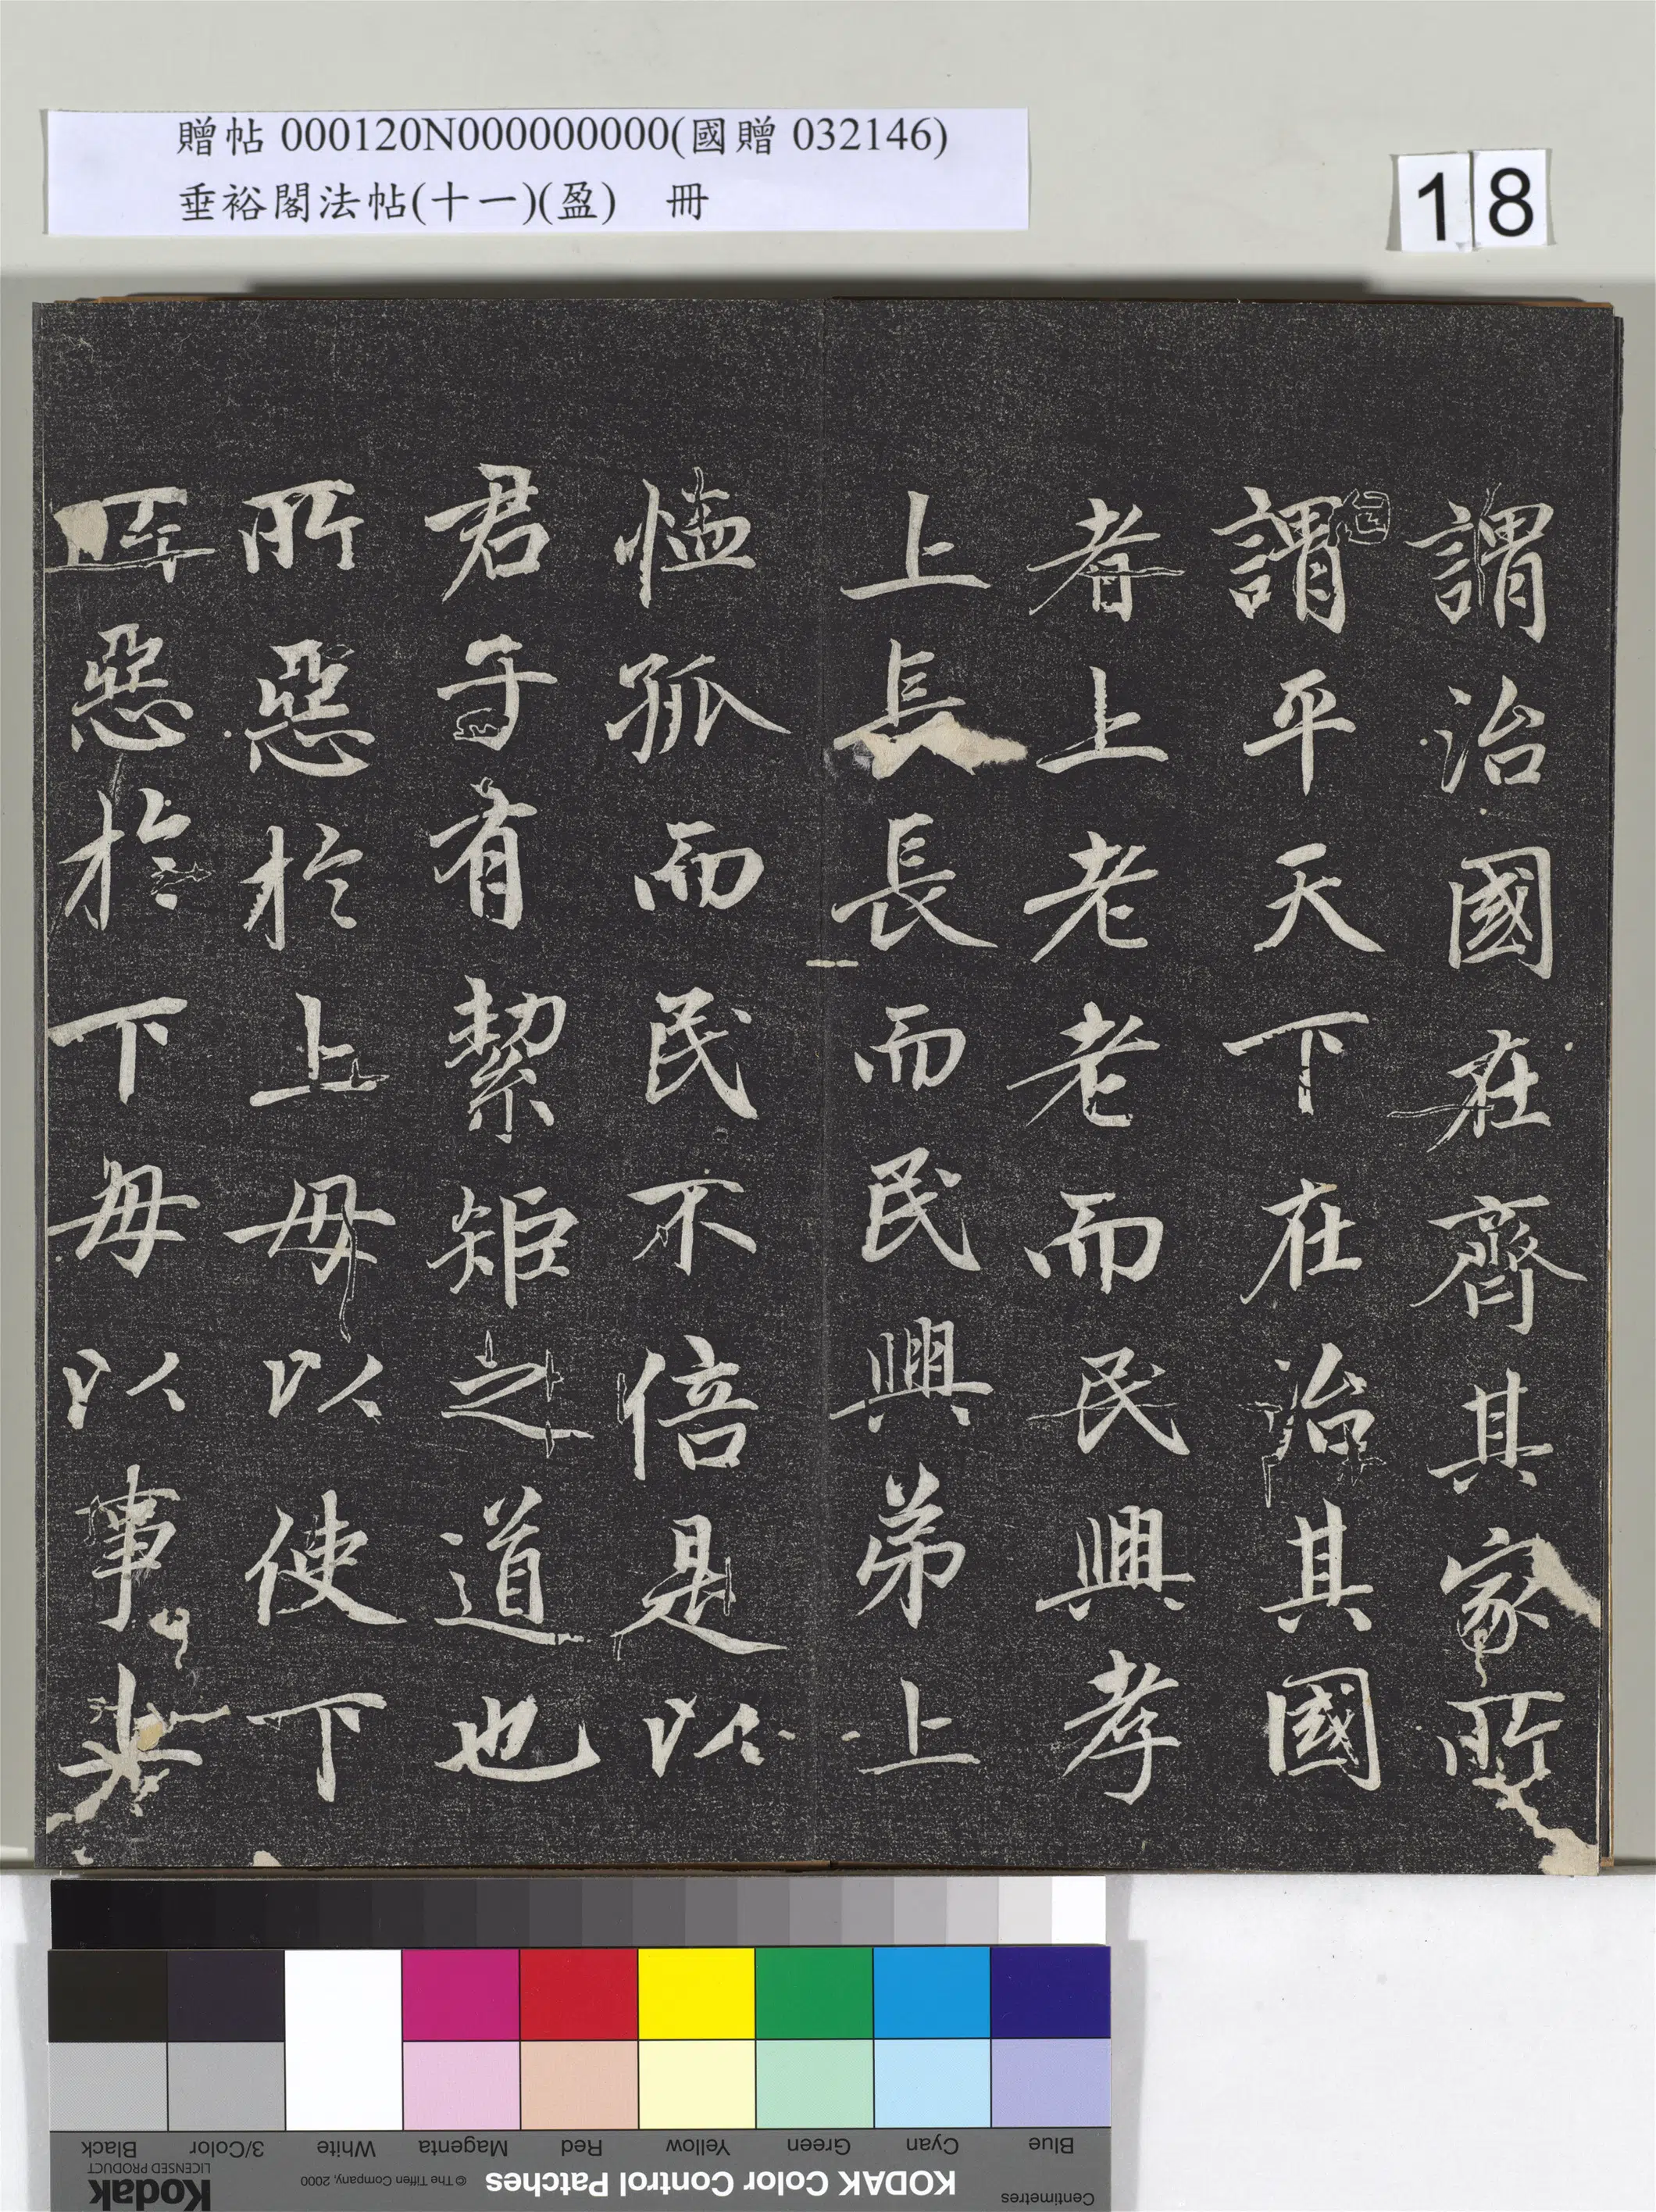 贈帖 000120N000000000(國贈 032146)
垂裕閣法帖(十一)(盈) 冊
18
謂治國在齊其家所
謂平天下在治其國
者上老老而民興孝
上長長而民興弟上
恤孤而民不倍是以
君子有絜矩之道也
所惡於上毋以使下
所惡於下毋以事上
Blue
Cyan
Green
Yellow
Red
Magenta
White
3/Color
Black
Centimetres
KODAK Color Control Patches
© The Tiffen Company, 2000
LICENSED PRODUCT
Kodak